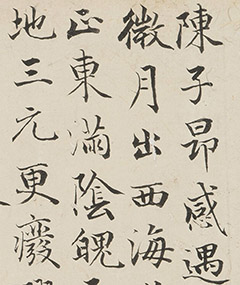 陳子昂感遇
微月出西海
正東滿陰魄
地三元更癈